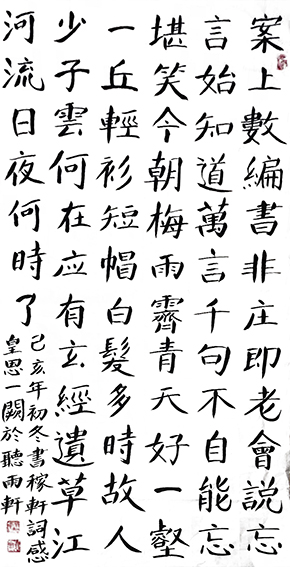 案上數編書非庄即老會説忘
言始知道萬言千句不自能忘
堪笑今朝梅雨霽青天好一壑
一丘輕衫短帽白髮多時故人
少子雲何在应有玄經遺草江
河流日夜何時了
己亥年初冬書稼軒詞感
皇恩一闕於聽雨軒